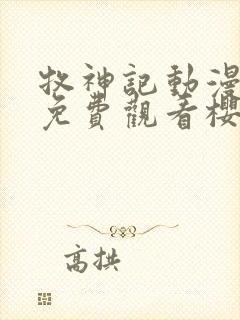 牧神記動漫
免費觀看櫻
高拱